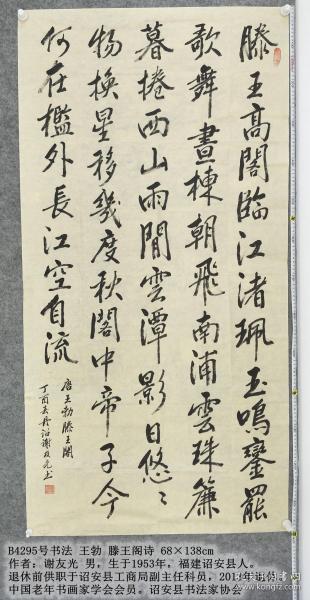 滕王高閣臨江渚珮玉鳴鑾罷
歌舞畫棟朝飛南浦雲珠簾
暮捲西山雨閒雲潭影日悠〻
物換星移幾度秋閣中帝子今
何在檻外長江空自流
唐王勃滕王閣
丁酉
B4295号书法 王勃 滕王阁诗 68×138cm
作者：谢友光 男，生于1953年，福建诏安县人。
退休前供职于诏安县工商局副主任科员，2013年退休。
中国老年书画家学会会员。诏安县书法家协会